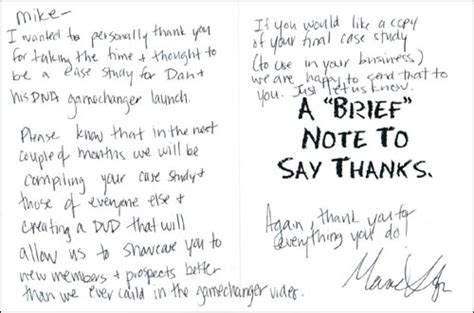 Mike-
I wanted to personally thank you
for taking the time + thought to
be a case study for Dan +
his DNA gamechanger launch.
Please know that in the next
couple of months we will be
compiling your case study +
those of everyone else +
creating a DVD that will
allow us to showcase you to
new members + prospects better
than we ever could in the gamechanger video.
If you would like a copy
of your final case study
(to use in your business)
we are happy to send that to
you. Just let us know.
A "BRIEF"
NOTE TO
SAY THANKS.
Again, thank you for
everything you do!